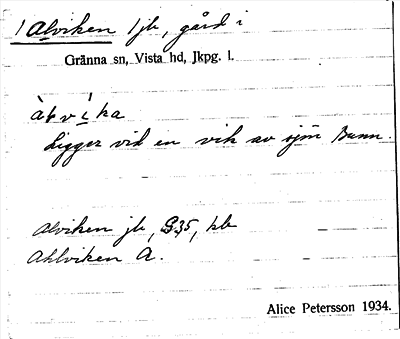 Alviken jb, gård i
Gränna sn, Vista hd, Jkpg. l.
àlvíka
Ligger vid en vik av sjön Bunn.
Alviken jb, G35, kb
Ahlviken A.
Alice Petersson 1934.